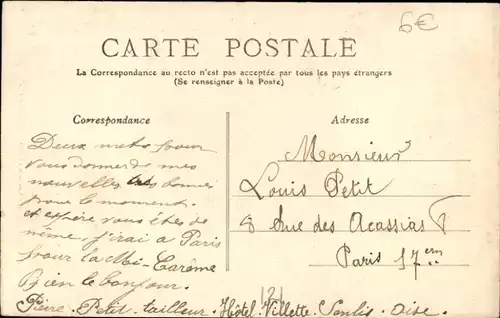 6€
CARTE POSTALE
La Correspondance au recto n'est pas acceptée par tous les pays étrangers
(Se renseigner à la Poste)
Correspondance
Deux mots pour
vous donner de mes
nouvelles très bonnes
pour le moment.
et espère vous êtes de
même. j'irai a Paris
pour la Mi-Carême
Bien le bonjour.
Pierre. Petit. tailleur. Hôtel. Villette. Senlis. Oise.
Adresse
Monsieur
Louis Petit
8 Rue des Acassias
Paris 17em